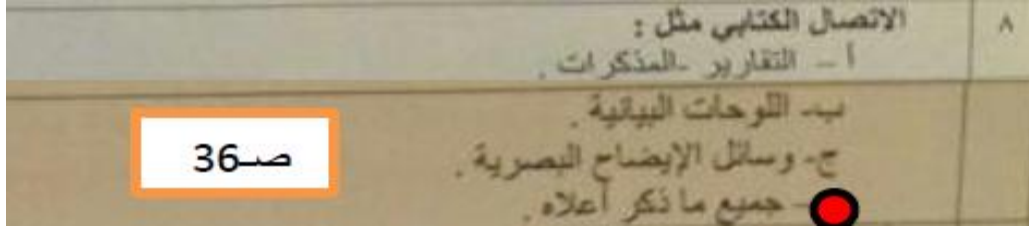 ٨ الاتصال الكتابي مثل :
أ – التقارير -المذكرات .
ب- اللوحات البيانية .
ج- وسائل الإيضاح البصرية .
- جميع ما ذكر أعلاه .
صـ36